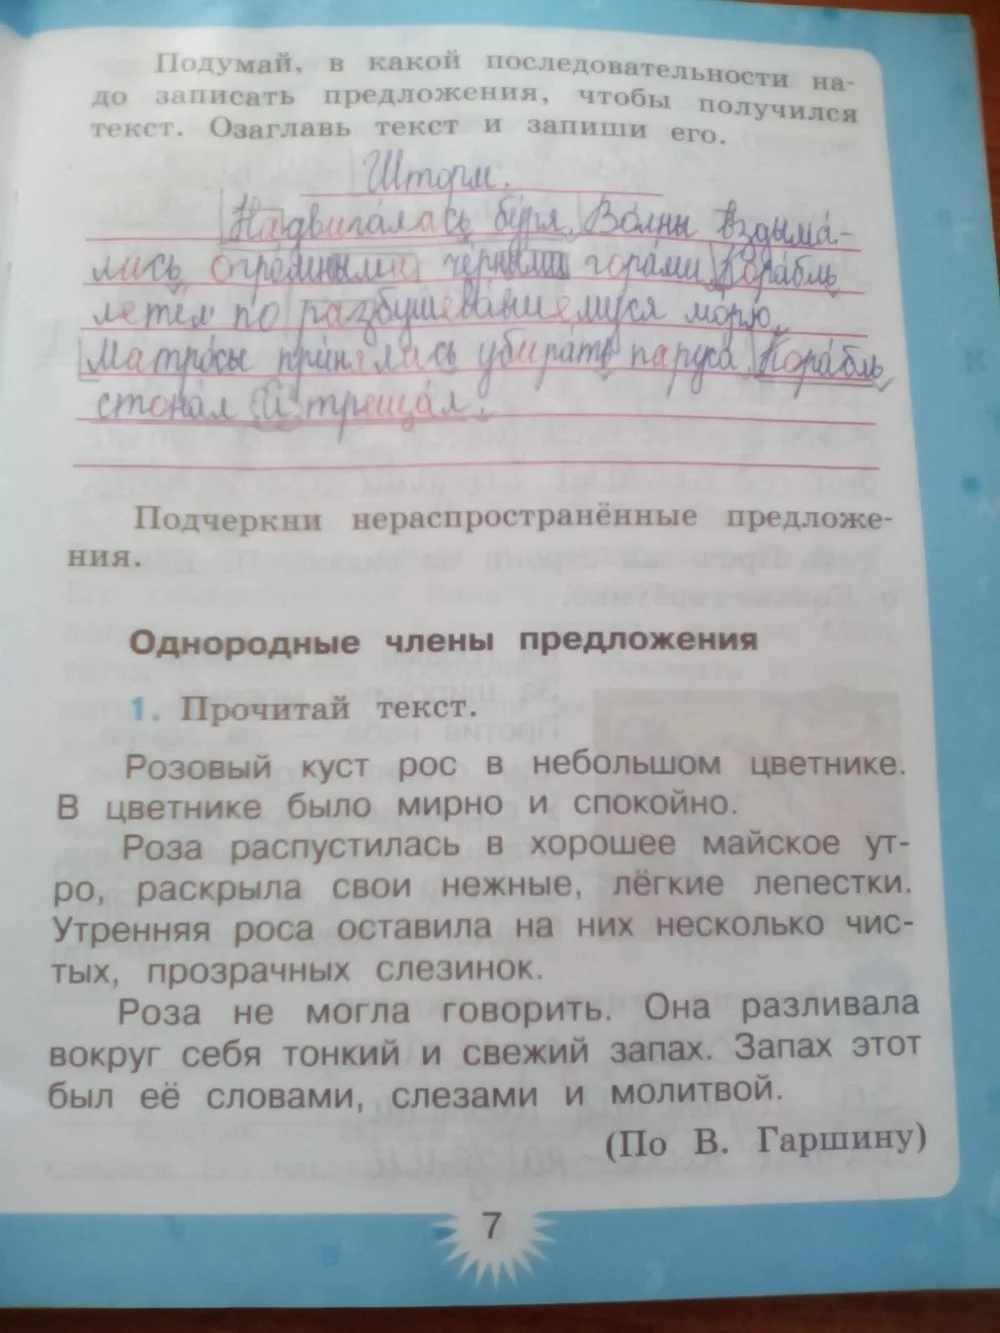 Подумай, в какой последовательности на-
до записать предложения, чтобы получился
текст. Озаглавь текст и запиши его.
Шторм.
Надвига́лась бу́ря. Во́лны вздыма́-
лись огро́мными чёрными гора́ми. Кора́бль
лете́л по разбушева́вшемуся мо́рю.
Матро́сы приняли́сь убира́ть паруса́. Кора́бль
стона́л и треща́л.
Подчеркни нераспространённые предложе-
ния.
Однородные члены предложения
1. Прочитай текст.
Розовый куст рос в небольшом цветнике.
В цветнике было мирно и спокойно.
Роза распустилась в хорошее майское ут-
ро, раскрыла свои нежные, лёгкие лепестки.
Утренняя роса оставила на них несколько чис-
тых, прозрачных слезинок.
Роза не могла говорить. Она разливала
вокруг себя тонкий и свежий запах. Запах этот
был её словами, слезами и молитвой.
(По В. Гаршину)
7